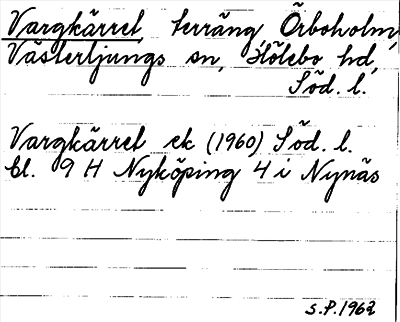 Vargkärret terräng Örboholm,
Västerljungs sn, Hölebo hd,
Söd. l.
Vargkärret ek (1960) Söd. l.
bl. 9 H Nyköping 4 i Nynäs
S.P. 1962